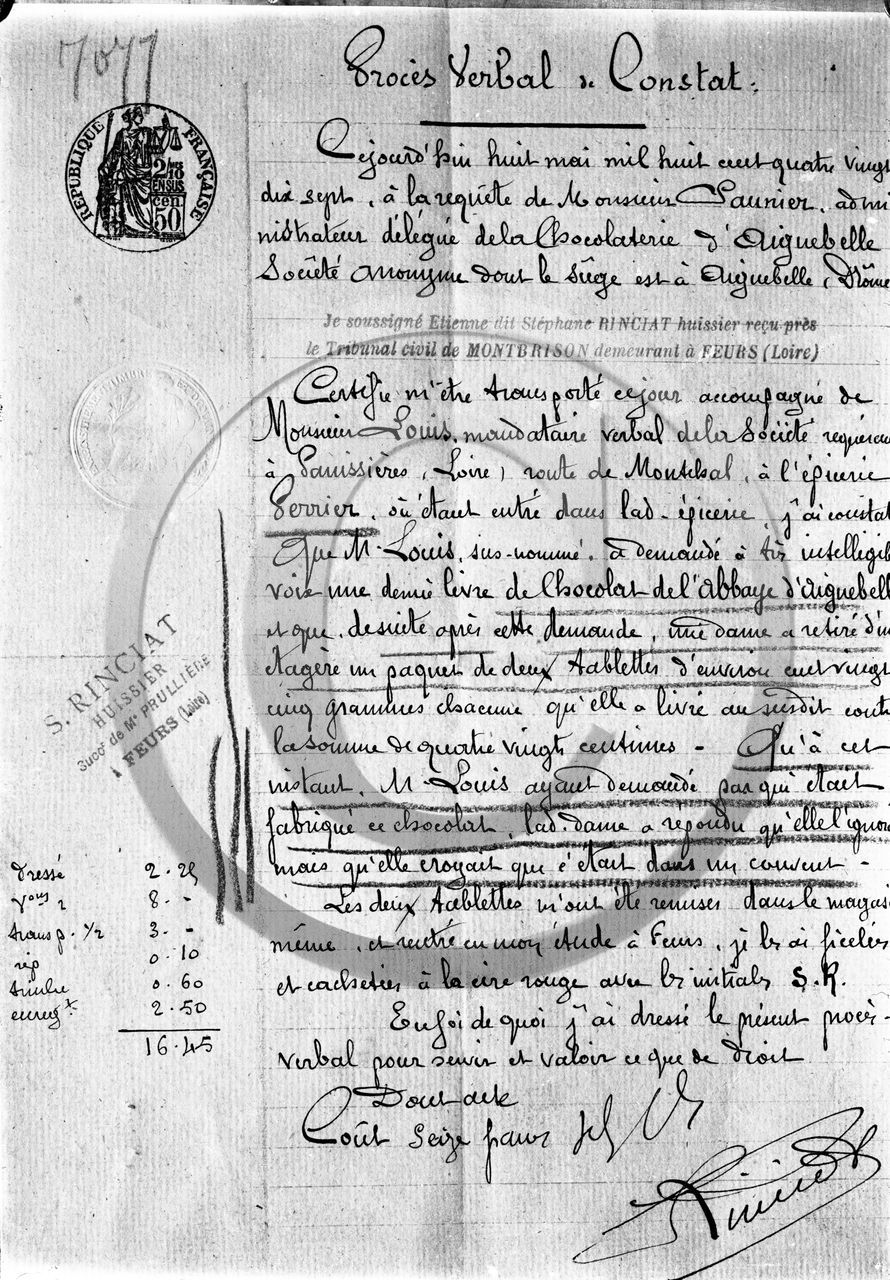 7077
Procès Verbal de Constat.
RÉPUBLIQUE FRANÇAISE
2/10
EN SUS
cen
50
Cejourd'hui huit mai mil huit cent quatre vingt
dix sept, à la requête de Monsieur Saunier, admi
nistrateur délégué de la Chocolaterie d'Aiguebelle
Société anonyme dont le siège est à Aiguebelle (Drôme
Je soussigné Etienne dit Stéphane RINCIAT huissier reçu près
le Tribunal civil de MONTBRISON demeurant à FEURS (Loire)
Certifie m'être transporté cejour accompagné de
Monsieur Louis, mandataire verbal de la Société requéran
à Panissières, (Loire) route de Montchal, à l'épicerie
Perrier, où étant entré dans lad. épicerie, j'ai constat
Que M. Louis, sus-nommé, a demandé à très intelligib
voix une demie livre de Chocolat de l'Abbaye d'Aiguebell
et que, desuite après cette demande, une dame a retiré d'un
étagère un paquet de deux tablettes d'environ cent vingt
cinq grammes chacune, qu'elle a livré au susdit contr
la somme de quatre vingts centimes - Qu'à cet
instant, M. Louis ayant demandé par qui était
fabriqué ce chocolat, lad. dame a répondu qu'elle l'ignor
mais qu'elle croyait que c'était dans un couvent -
Les deux tablettes m'ont été remises dans le magasi
même, et rentré en mon étude à Feurs, je les ai ficelées
et cachetées à la cire rouge avec les initiales S.R.
En foi de quoi j'ai dressé le présent procès-
verbal pour servir et valoir ce que de droit
Dont acte
Coût Seize francs
Rinciat
S. RINCIAT
HUISSIER
Succr de Me PRULLIÈRE
à FEURS (Loire)
dressé 2.25
Vous 2 8.-
transp. 1/2 3.-
rép 0.10
timbre 0.60
enregt 2.50
16.45